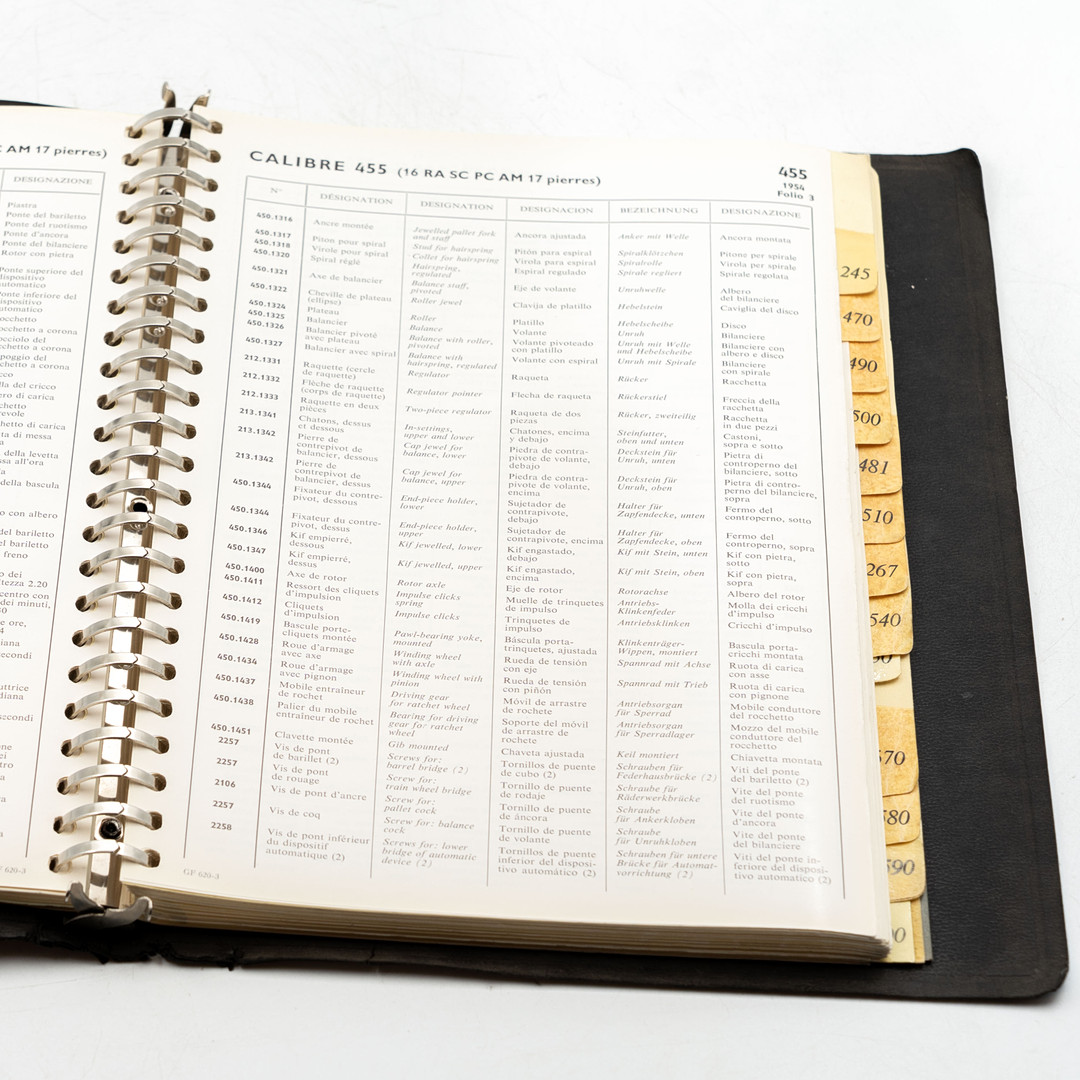 C AM 17 pierres)
DESIGNAZIONE
Piastra
Ponte del bariletto
Ponte del ruotismo
Ponte d'ancora
Ponte del bilanciere
Rotor con pietra
Ponte superiore del
dispositivo
automatico
Ponte inferiore del
dispositivo
automatico
CALIBRE 455 (16 RA SC PC AM 17 pierres)
455
1954
Folio 3
N° DÉSIGNATION DESIGNATION DESIGNACION BEZEICHNUNG DESIGNAZIONE
450.1316 Ancre montée Jewelled pallet fork Ancora ajustada Anker mit Welle Ancora montata
and staff
450.1317 Piton pour spiral Stud for hairspring Pitón para espiral Spiralklötzchen Pitone per spirale
450.1318 Virole pour spiral Collet for hairspring Virola para espiral Spiralrolle Virola per spirale
450.1320 Spiral réglé Hairspring, Espiral regulado Spirale regliert Spirale regolata
regulated
450.1321 Axe de balancier Balance staff, Eje de volante Unruhwelle Albero
pivoted del bilanciere
450.1322 Cheville de plateau Roller jewel Clavija de platillo Hebelstein Caviglia del disco
(ellipse)
450.1324 Plateau Roller Platillo Hebelscheibe Disco
450.1325 Balancier Balance Volante Unruh Bilanciere
450.1326 Balancier pivoté Balance with roller, Volante pivoteado Unruh mit Welle Bilanciere con
avec plateau pivoted con platillo und Hebelscheibe albero e disco
450.1327 Balancier avec spiral Balance with Volante con espiral Unruh mit Spirale Bilanciere
hairspring, regulated con spirale
212.1331 Raquette (cercle Regulator Raqueta Rücker Racchetta
de raquette)
212.1332 Flèche de raquette Regulator pointer Flecha de raqueta Rückerstiel Freccia della
(corps de raquette) racchetta
212.1333 Raquette en deux Two-piece regulator Raqueta de dos Rücker, zweiteilig Racchetta
pièces piezas in due pezzi
213.1341 Chatons, dessus In-settings, Chatones, encima Steinfutter, Castoni,
et dessous upper and lower y debajo oben und unten sopra e sotto
213.1342 Pierre de Cap jewel for Piedra de contra- Deckstein für Pietra di
contrepivot de balance, lower pivote de volante, Unruh, unten controperno del
balancier, dessous debajo bilanciere, sotto
213.1342 Pierre de Cap jewel for Piedra de contra- Deckstein für Pietra di contro-
contrepivot de balance, upper pivote de volante, Unruh, oben perno del bilanciere,
balancier, dessus encima sopra
450.1344 Fixateur du contre- End-piece holder, Sujetador de Halter für Fermo del
pivot, dessous lower contrapivote, Zapfendecke, unten controperno, sotto
debajo
450.1344 Fixateur du contre- End-piece holder, Sujetador de Halter für Fermo del
pivot, dessus upper contrapivote, encima Zapfendecke, oben controperno, sopra
450.1346 Kif empierré, Kif jewelled, lower Kif engastado, Kif mit Stein, unten Kif con pietra,
dessous debajo sotto
450.1347 Kif empierré, Kif jewelled, upper Kif engastado, Kif mit Stein, oben Kif con pietra,
dessus encima sopra
450.1400 Axe de rotor Rotor axle Eje de rotor Rotorachse Albero del rotor
450.1411 Ressort des cliquets Impulse clicks Muelle de trinquetes Antriebs- Molla dei cricchi
d'impulsion spring de impulso Klinkenfeder d'impulso
450.1412 Cliquets Impulse clicks Trinquetes de Antriebsklinken Cricchi d'impulso
d'impulsion impulso
450.1419 Bascule porte- Pawl-bearing yoke, Báscula porta- Klinkenträger- Bascula porta-
cliquets montée mounted trinquetes, ajustada Wippen, montiert cricchi montata
450.1428 Roue d'armage Winding wheel Rueda de tensión Spannrad mit Achse Ruota di carica
avec axe with axle con eje con asse
450.1434 Roue d'armage Winding wheel with Rueda de tensión Spannrad mit Trieb Ruota di carica
avec pignon pinion con piñón con pignone
450.1437 Mobile entraîneur Driving gear Móvil de arrastre Antriebsorgan Mobile conduttore
de rochet for ratchet wheel de rochete für Sperrad del rocchetto
450.1438 Palier du mobile Bearing for driving Soporte del móvil Antriebsorgan Mozzo del mobile
entraîneur de rochet gear for ratchet de arrastre de für Sperradlager conduttore del
wheel rochete rocchetto
450.1451 Clavette montée Gib mounted Chaveta ajustada Keil montiert Chiavetta montata
2257 Vis de pont Screws for: Tornillos de puente Schrauben für Viti del ponte
de barillet (2) barrel bridge (2) de cubo (2) Federhausbrücke (2) del bariletto (2)
2257 Vis de pont Screw for: Tornillo de puente Schraube für Vite del ponte
de rouage train wheel bridge de rodaje Räderwerkbrücke del ruotismo
2106 Vis de pont d'ancre Screw for: Tornillo de puente Schraube Vite del ponte
pallet cock de áncora für Ankerkloben d'ancora
2257 Vis de coq Screw for: balance Tornillo de puente Schraube Vite del ponte
cock de volante für Unruhkloben del bilanciere
2258 Vis de pont inférieur Screws for: lower Tornillos de puente Schrauben für untere Viti del ponte in-
du dispositif bridge of automatic inferior del disposi- Brücke für Automat- feriore del disposi-
automatique (2) device (2) tivo automático (2) vorrichtung (2) tivo automatico (2)
GF 620-3
245
470
490
500
481
510
267
540
90
570
580
590